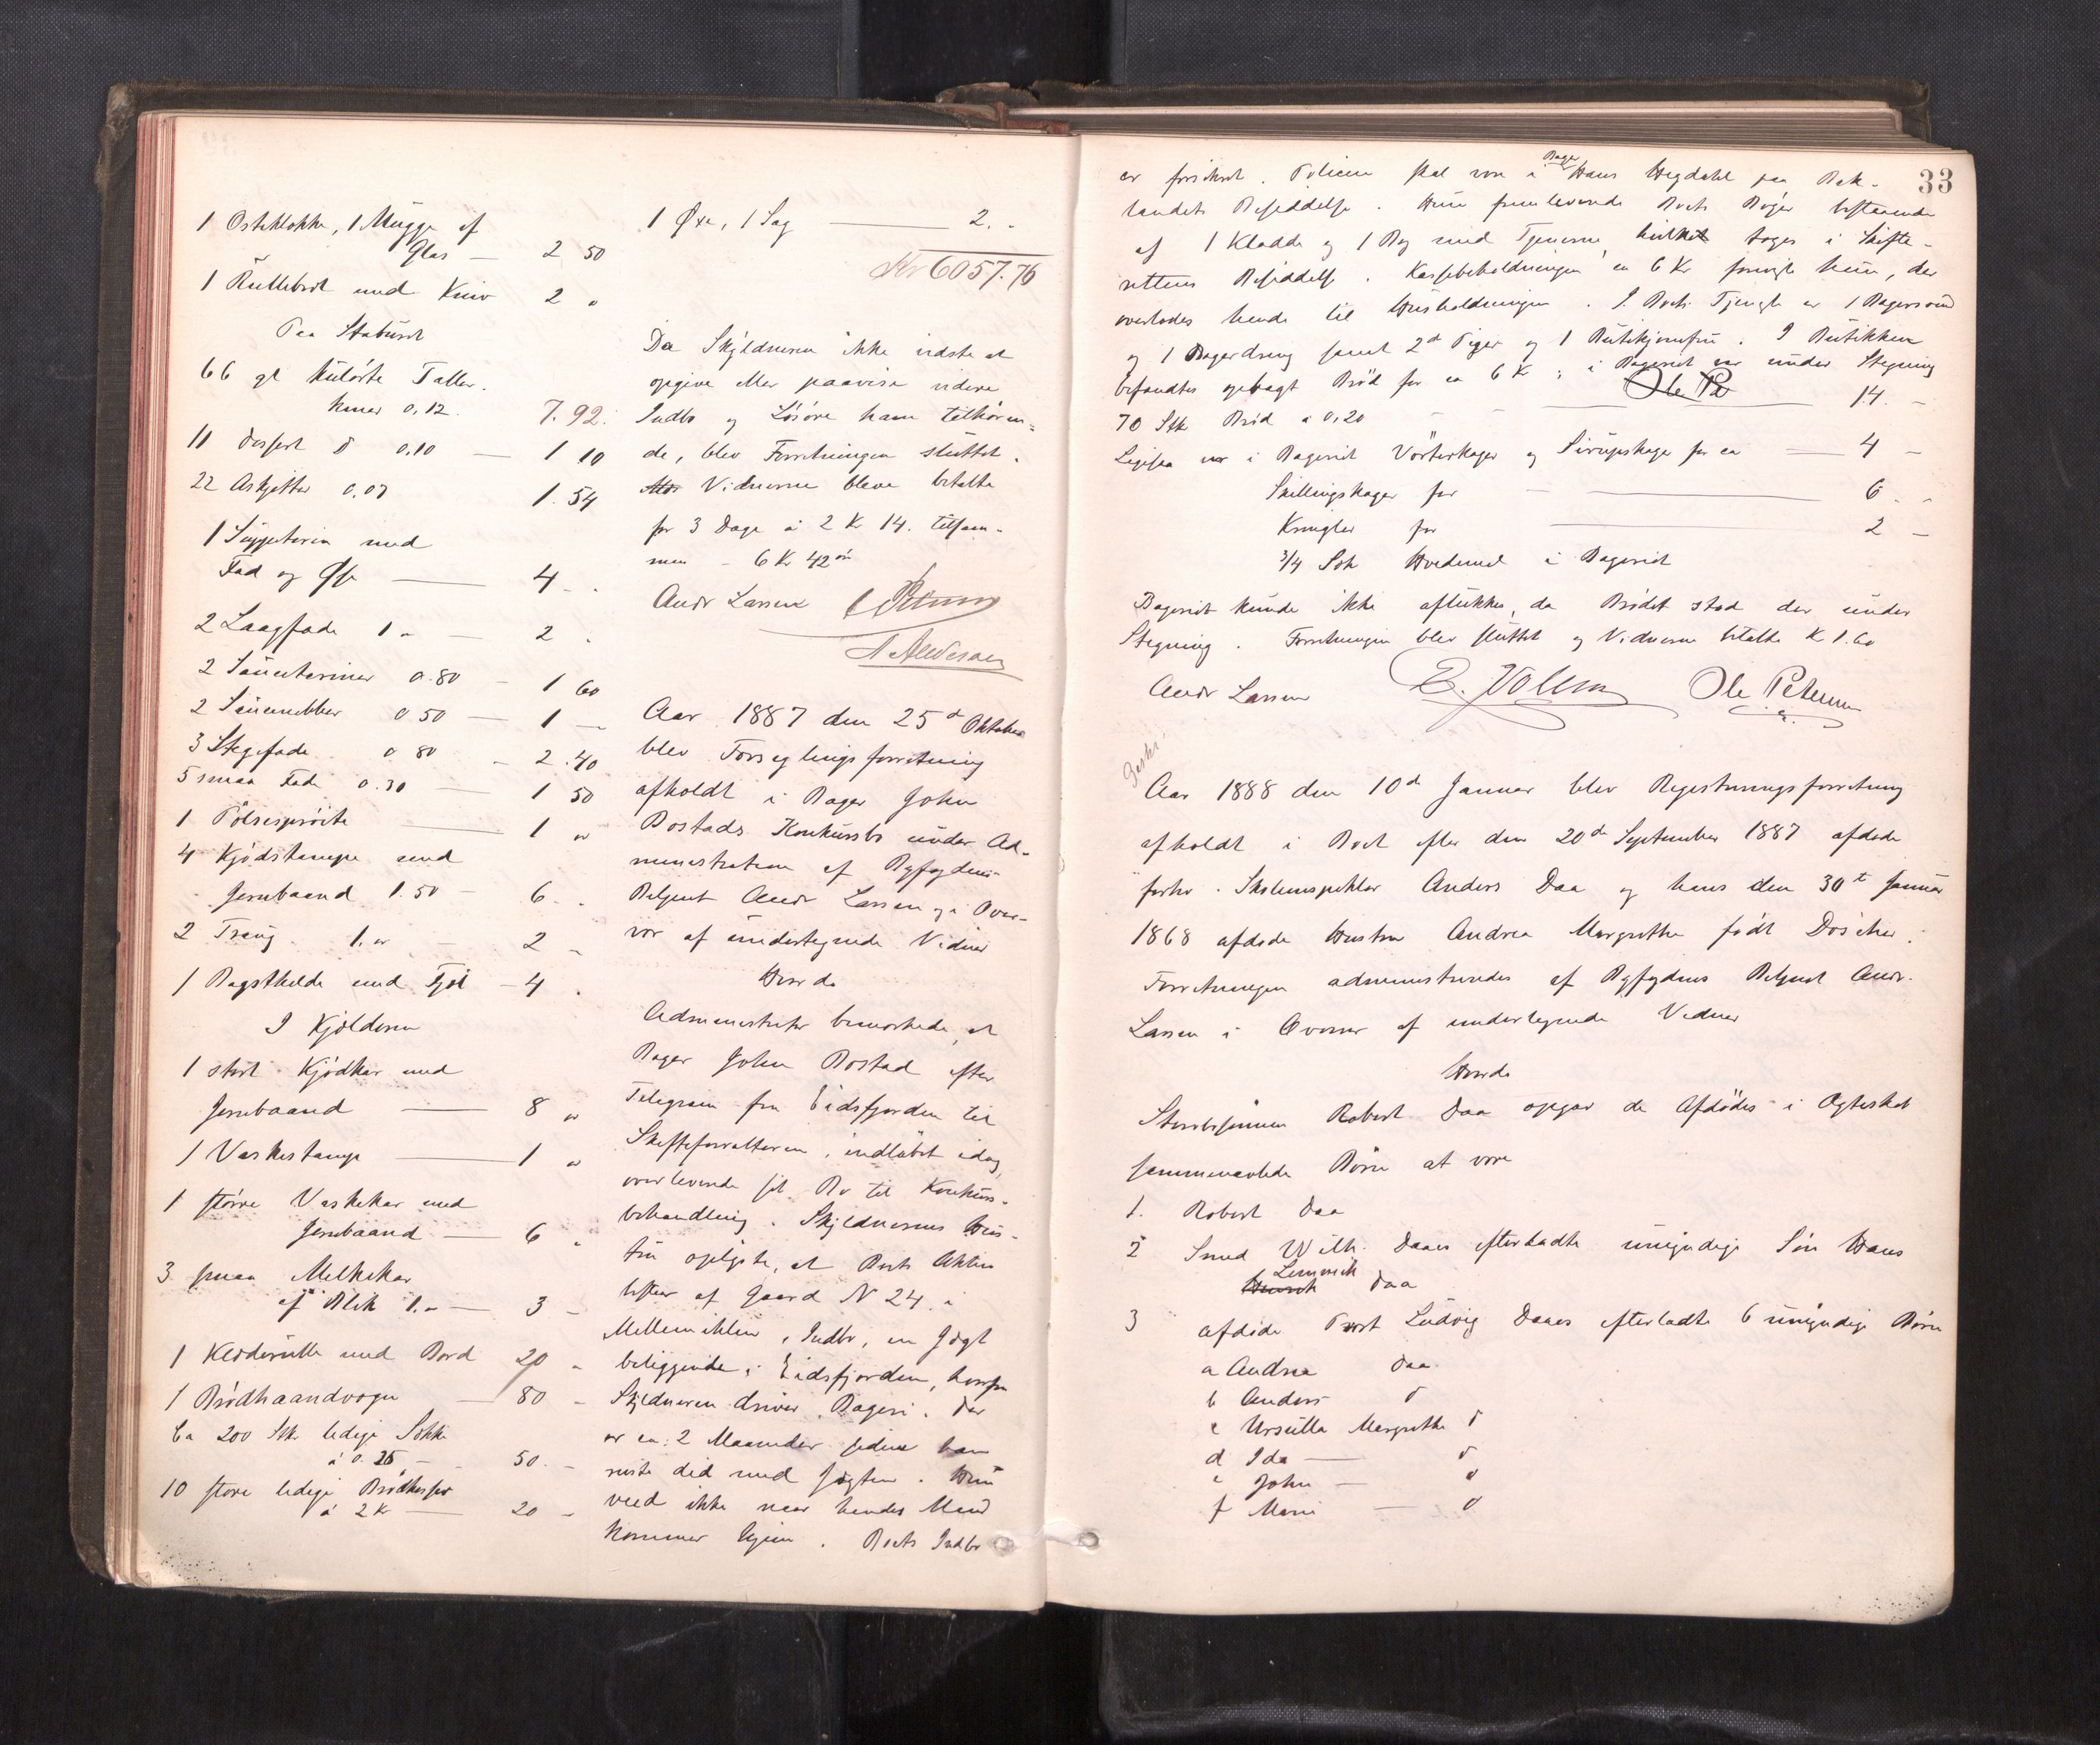 1 Osteklokke, 1 Mugge af
Glas — 2 50
1 Rullebret med Kniv 2 "
Paa Staburet
66 gl kulörte Taller.
kener 0,12. 7.92.
11 dessert d 0.10 — 1 10
22 Asjetter 0,07 1.54
1 Suppeterin med
Fad og Øse — 4 - .
2 Laagfade 1 " — 2 .
2 Sauceteriner 0.80 - 1 60
2 Saucenebber 0 50 — 1 —
3 Stegefade 0 80 - 2.40
5 smaa Fade 0.30 — 1 50
1 Pölsespröite — 1 "
4 Kjödstampe med
Jernbaand 1.50 - 6 . .
2 Traug 1. " - 2 -
1 Bagsthelde med Fjöl - 4 .
I Kjælderen
1 stort Kjödkar med
Jernbaand — 8 "
1 Vaskestampe — 1 "
1 större Vaskekar med
Jernbaand — 6 "
3 smaa Melkekar
af Blik 1. " — 3 -
1 Klæderulle med Bord 20 "
1 Brödhaandvogn — 80 -
Ca 200 Stk ledige Sække
á 0.25 — 50. -
10 store ledige Brödkasser
á 2 Kr — 20 -
1 Øxe, 1 Sag — 2. "
Kr 6057.76
Da Skyldneren ikke vidste at
opgive eller paavise videre
Indbo og Lösöre ham tilhören=
de, blev Forretningen sluttet.
Vidnerne bleve betalte
for 3 Dage á 2 Kr 14. tilsam-
men - 6 Kr 42 ör
Andr Larsen
Aar 1887 den 25d Oktober
blev Forseglingsforretning
afholdt i Bager John
Bostads Konkursbo under Ad-
ministration af Byfogdens
Betjent Andr Larsen og i Over-
vær af undertegnede Vidner
Hvorda
Administrator bemærkede, at
Bager John Bostad efter
Telegram fra Eidsfjorden til
Skifteforvalteren, indlöbet idag,
overleverede sit Bo til Konkurs-
behandling. Skyldnerens Hus-
tru oplyste, at Boets Aktiva
bestaar af Gaard N 24 i
Mellemiklen, Indbo, en Jægt
beliggende i Eidsfjorden, hvorfra
Skyldneren driver Bageri. Der
er ca. 2 Maaneder siden han
reiste did med Jægten. Hun
veed ikke naar hendes Mand
kommer hjem. Boets Indbo
33
er forsikret. Policen skal være i Bager Hans Hegdahl paa Bak-
landets Besiddelse. Hun fremleverede Boets Böger bestaaende
af 1 Kladde og 1 Bog med Tjenerne, hvilket toges i Skifte-
rettens Besiddelse. Kassebeholdningen ca 6 Kr foreviste hun, der
overlodes hende til Husholdningen. I Boets Tjeneste er 1 Bagersvend
og 1 Bagerdreng samt 2d Piger og 1 Butikjomfru. I Butikken
befandtes opbagt Bröd for ca 6 Kr; i Bageriet var under Stegning
70 Stk Bröd á 0.20 - - Ole Pe 14. -
Ligesaa var i Bageriet Vörterkager og Sirupskager for ca — 4 -
Skillingskager for — 6 - -
Kringler for — 2 -
3/4 Sæk Hvedemel i Bageriet
Bageriet kunde ikke aflukkes, da Brödet stod der under
Stegning. Forretningen blev sluttet og Vidnerne betalte Kr 1.60
Andr Larsen E. Vollen Ole Petersen
Aar 1888 den 10d Januar blev Registreringsforretning
afholdt i Boet efter den 20de September 1887 afdöde
forhv. Skoleinspektör Anders Daa og hans den 30te Januar
1868 afdöde Hustru Andrea Margrethe födt Döscher.
Forretningen administreredes af Byfogdens Betjent Andr.
Larsen i Overvær af undertegnede Vidner
Hvorda
Stervbosönnen Robert Daa opgav de Afdödes i Ægteskab
sammenavlede Börn at være
1. Robert Daa
2 Smed Wilh. Daaes efterladte umyndige Sön Hans
Lemmich Daa
3 afdöde Ludvig Daaes efterladte 6 umyndige Börn
a Andrea Daa
b Anders d
c Ursulla Margrethe d
d Ida — d
e John — d
f Marie — d